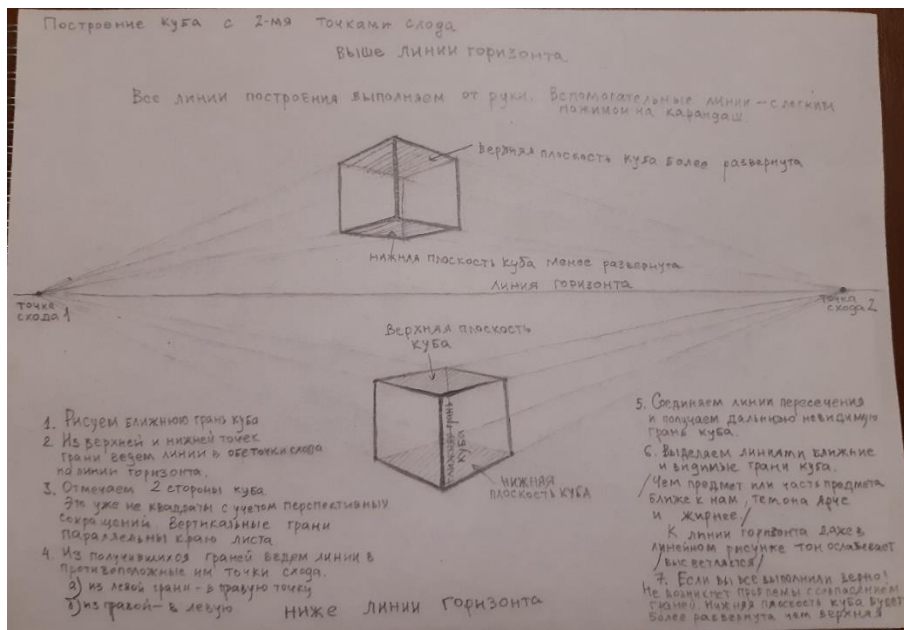 Построение куба с 2-мя точками схода
выше линии горизонта
Все линии построения выполняем от руки. Вспомогательные линии – с легким
нажимом на карандаш
верхняя плоскость куба более развернута
нижняя плоскость куба менее развернута
линия горизонта
точка
схода 1
точка
схода 2
Верхняя плоскость
куба
ближняя грань
куба
нижняя
плоскость куба
1. Рисуем ближнюю грань куба
2 Из верхней и нижней точек
грани ведем линии в обе точки схода
на линии горизонта.
3. Отмечаем 2 стороны куба.
Это уже не квадраты с учетом перспективных
сокращений. Вертикальные грани
параллельны краю листа.
4. Из получившихся граней ведем линии в
противоположные им точки схода.
а) из левой грани – в правую точку
б) из правой – в левую
ниже линии горизонта
5. Соединяем линии пересечения
и получаем дальнюю невидимую
грань куба.
6. Выделяем линиями ближние
и видимые грани куба.
/Чем предмет или часть предмета
ближе к нам, тем она ярче
и жирнее./
К линии горизонта даже в
линейном рисунке тон ослабевает
/высветляется/
7. Если вы все выполнили верно!
Не возникнет проблемы с совпадением
граней. Нижняя плоскость куба будет
более развернута чем верхняя